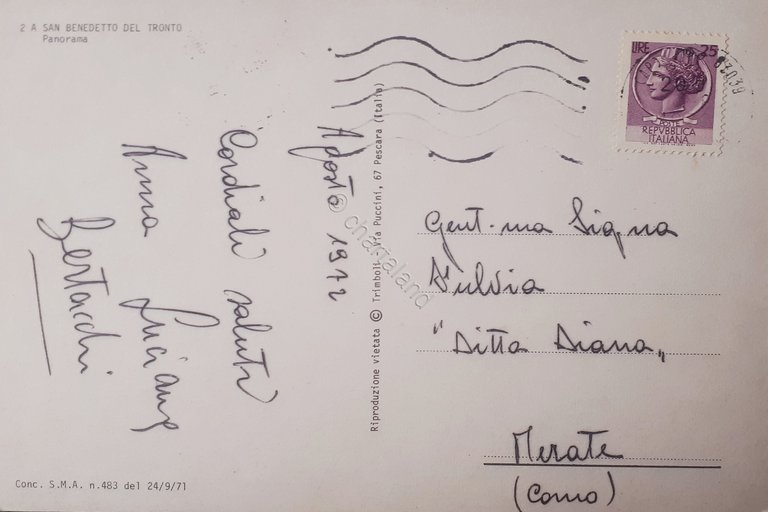 2 A SAN BENEDETTO DEL TRONTO
Panorama
Agosto 1972
Cordiali saluti
Anna Luciano
Bertacchi
Conc. S.M.A. n.483 del 24/9/71
Riproduzione vietata © Trimboli, Via Puccini, 67 Pescara (Italia)
LIRE 25
POSTE
REPVBBLICA
ITALIANA
63039
Gent.ma Sig.na
Fulvia
"Ditta Diana"
Merate
(Como)
© chartaland